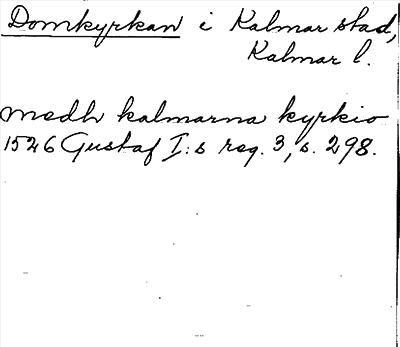 Domkyrkan i Kalmar stad,
Kalmar l.
medh kalmarna kyrkio
1526 Gustaf I:s reg. 3, s. 298.